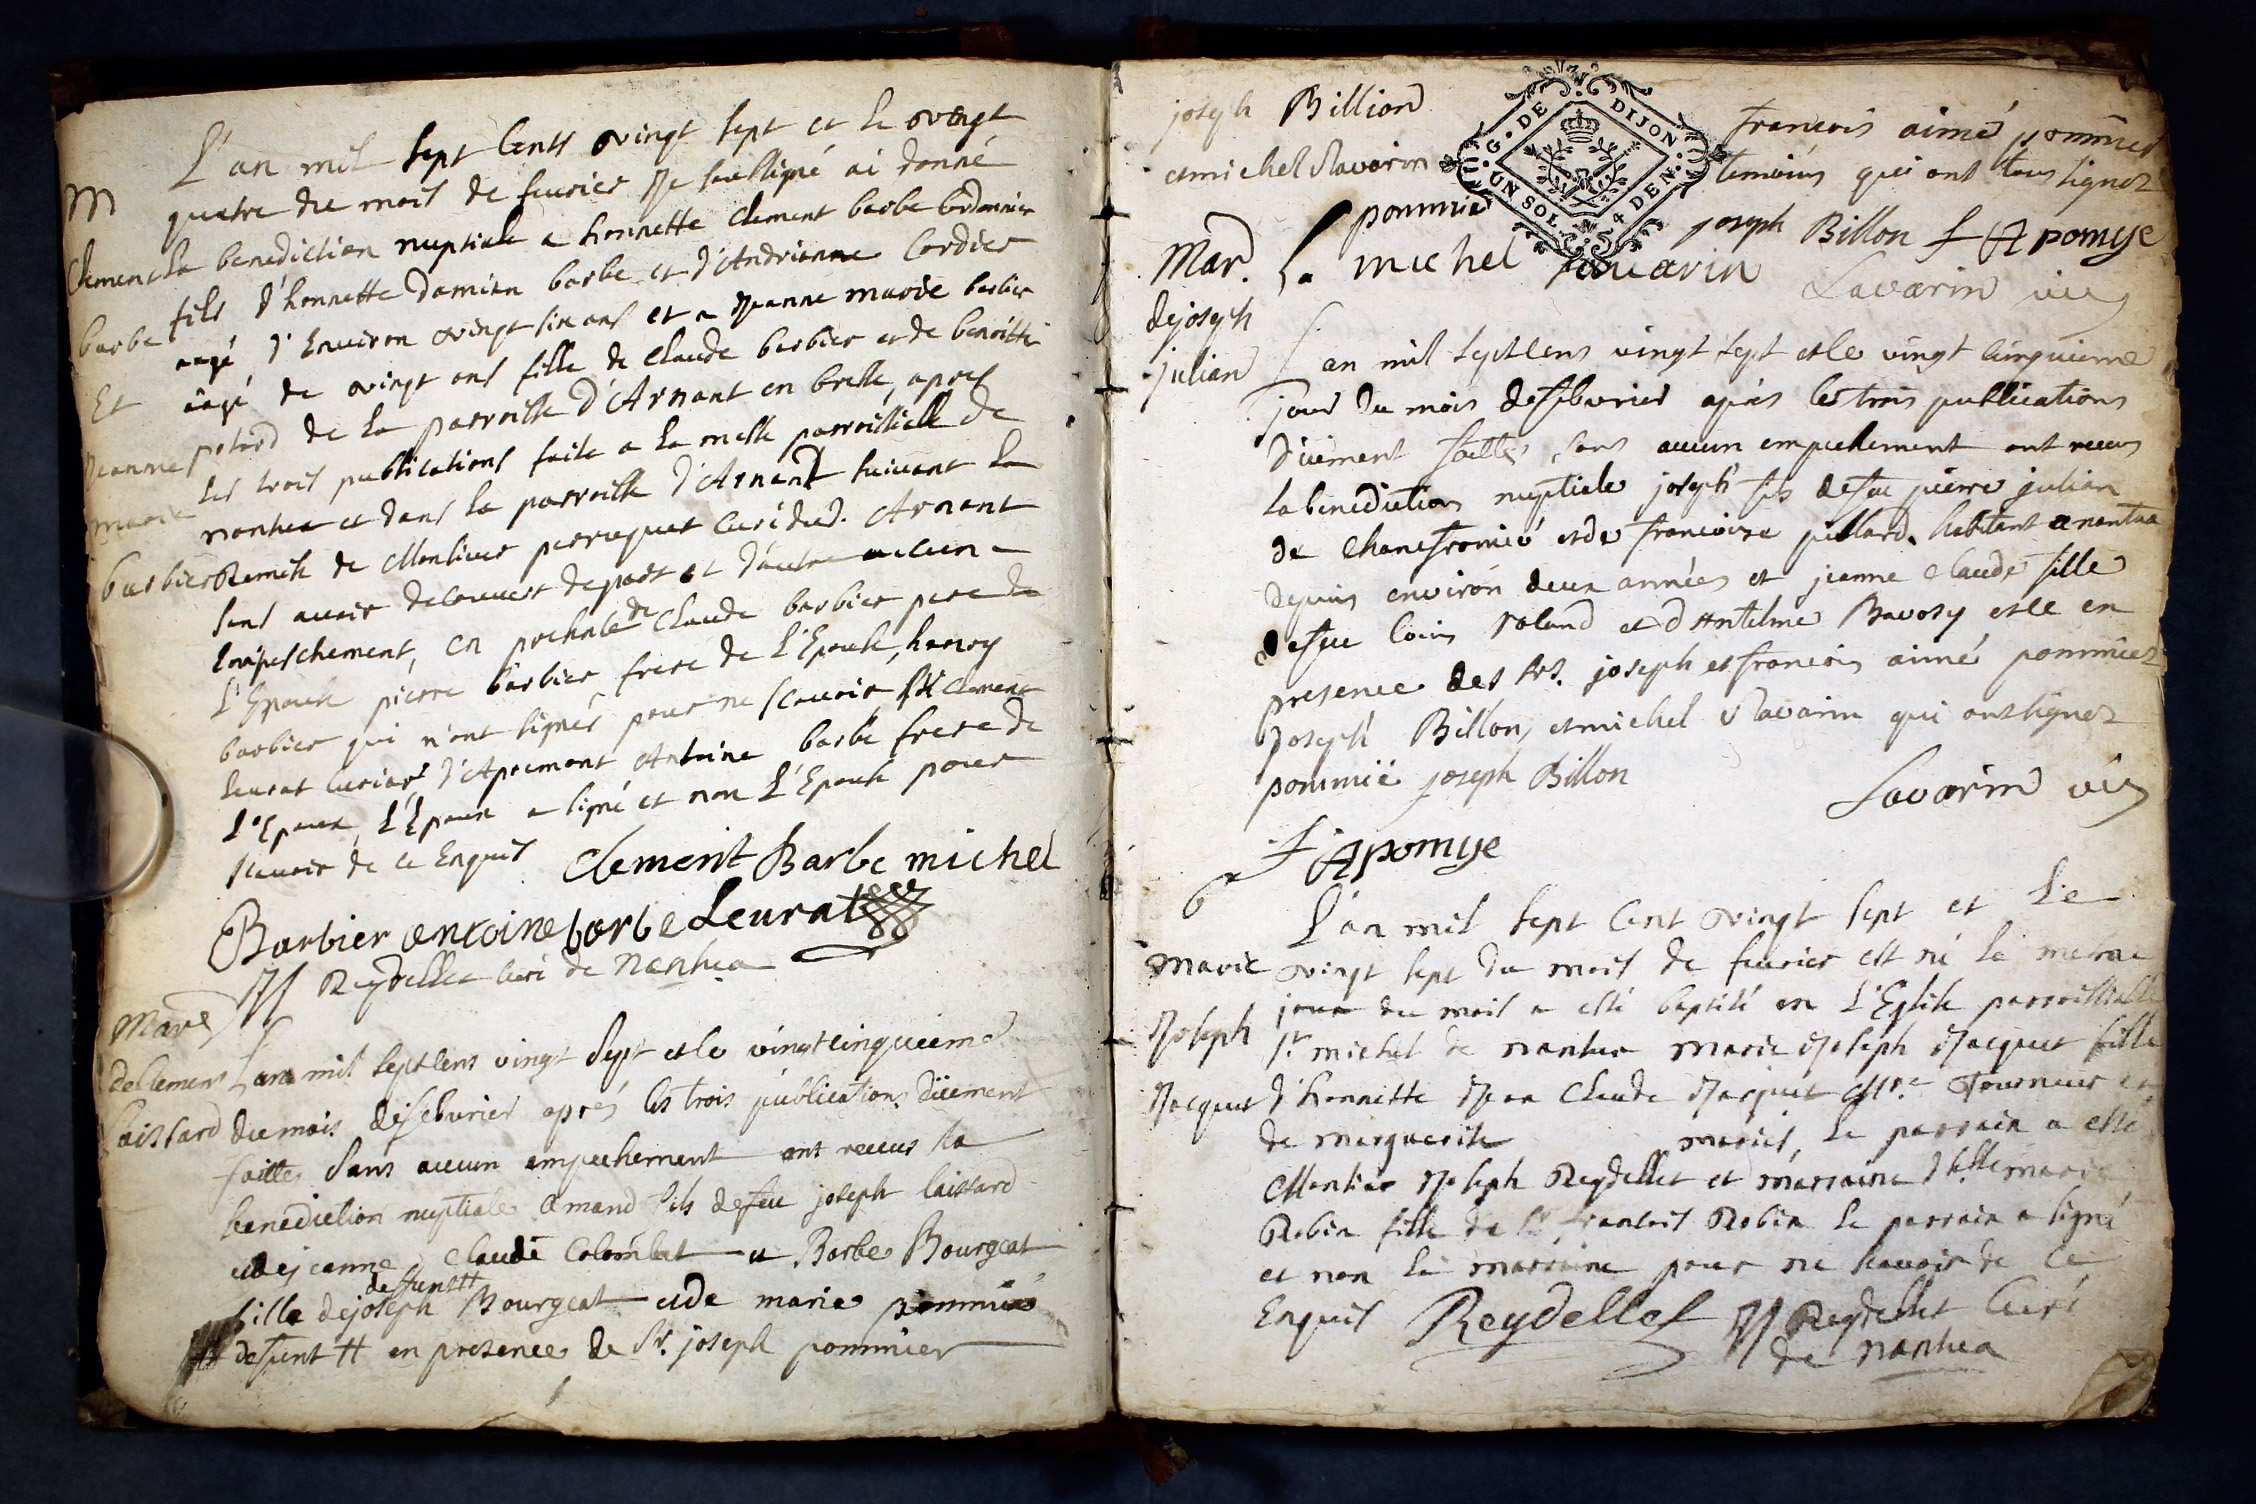 L'an mil sept cents vingt sept et le vingt
M quatre du mois de fevrier Je soussigné ai donné
Clement la benediction nuptiale a honnette Clement barbe Cordonnier
barbe fils d'honnette Damien barbe et d'Andrienne Cordier
aagé d'Environ vingt six ans et a Jeanne marie barbier
Et aagé de vingt ans fille de Claude barbier et de benoitte
Jeanne potard de la parroisse d'Arnant en bresse, apres
marie les trois publications faite a la messe parroissielle de
nantua et dans la parroisse d'Arnant suivant la
barbier Remise de Monsieur perruquet Curé dud. Arnant
sans avoir decouvert de part et d'autre aucun
Empeschement, en presence de Claude barbier pere de
L'Epouse pierre barbier frere de L'Epouse, henry
barbier qui n'ont signés pour ne scavoir, Sr Clement
Leurat Curial d'Apremont Antoine barbe frere de
L'Epoux, L'Epoux a signé et non L'Epouse pour
scavoir de ce Enquis Clement Barbe michel
Barbier antoine barbe Leurat
JJ Reydellet Curé de Nantua
Mare
de Clemens L'an mil sept cens vingt Sept et le vingt cinquieme
laissard du mois de febvrier aprés les trois publications düement
faittes Sans aucun empechement ont receus la
benediction nuptiale Amand fils de feu joseph laissard
et de jeanne Claude Colombat et Barbe Bourgeat
deffunt H
fille de joseph Bourgeat et de marie pommié
defunt H en presence de Sr. joseph pommier
joseph Billion francois aimé pommier
G. DE DIJON
UN SOL 4 DEN.
et michel Savarin temoins qui ont tous signez
pommié joseph Billon F A pomye
Mar. michel Savarin Savarin vic
de joseph
julian L'an mil sept cens vingt sept et le vingt cinquieme
jour du mois de febvrier aprés les trois publications
düement faittes, sans aucun empechement ont receus
la benediction nuptiale joseph fils de feu pierre julian
de Chanefromié et de francoise pillard habitant a nantua
depuis environ deux années et jeanne Claude fille
de feu Louis roland et d'Antelme Bavosy et ce en
presence des srs. joseph et francois aimé pommiez
joseph Billon, et michel Savarin qui ont signez
pommié joseph Billon Savarin vic
F A pomye
b L'an mil sept Cent vingt sept et Le
Marie vingt sept du mois de fevrier est né le mesme
jour du mois a esté baptisé en L'Eglise parroissialle
Joseph St michel de nantua marie Joseph Jacquet fille
Jacquet d'honnette Jean Claude Jacquet Mre Tourneur et
de marguerite mariés, Le parrain a esté
Monsieur Joseph Reydellet et marraine Dlle marie
Robin fille de Sr francois Robin le parrain a signé
et non la marraine pour ne scavoir de ce
Enquis Reydellet JJ Reydellet Curé
de Nantua